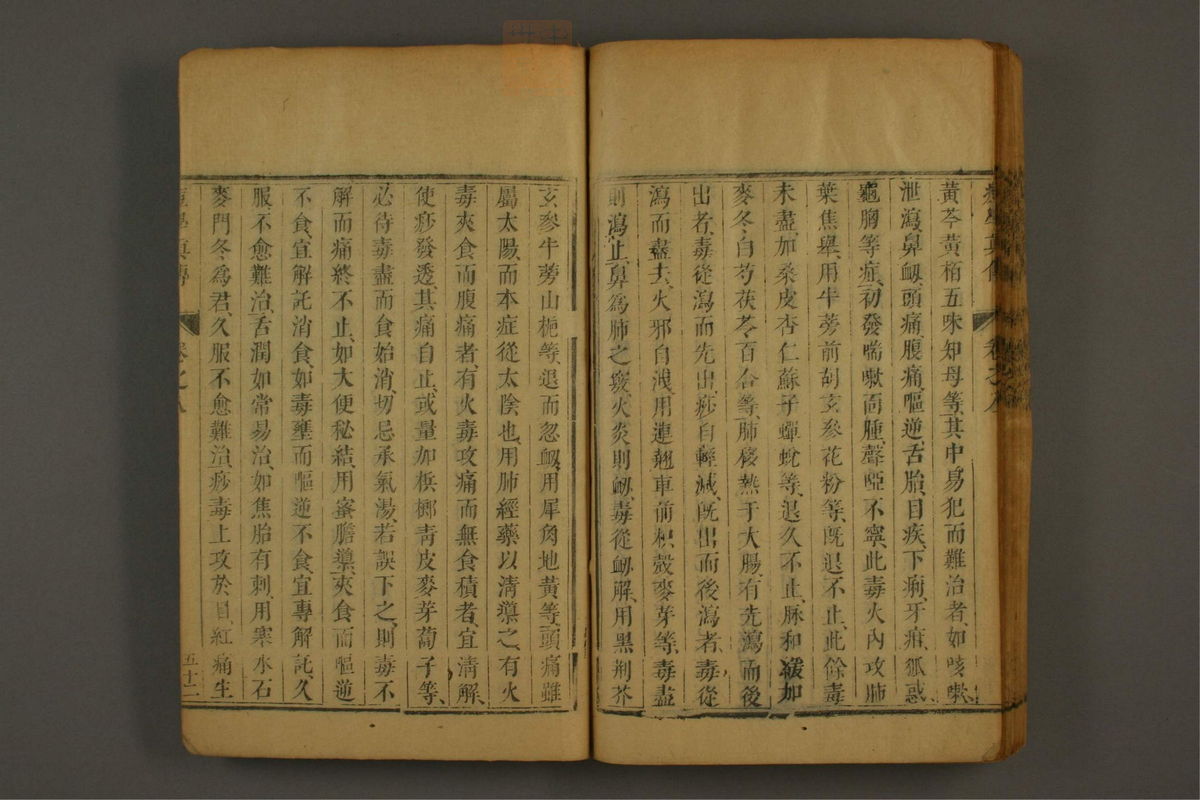 黃芩黃栢五味知母等其中易犯而難治者如咳嗽
泄瀉鼻衂頭痛腹痛嘔逆舌胎目疾下痢牙疳狐惑
龜胸等症初發喘嗽面腫聲啞不寧此毒火內攻肺
葉焦舉用牛蒡前胡玄參花粉等既退不止此餘毒
未盡加桑皮杏仁蘇子蟬蛻等退久不止脉和緩加
麥冬白芍茯苓百合等肺移熱于大腸有先瀉而後
出者毒從瀉而先出痧自輕減既出而後瀉者毒從
瀉而盡去火邪自洩用連翹車前枳殼麥芽等毒盡
則瀉止鼻爲肺之竅火炎則衂毒從衂解用黑荆芥
玄參牛蒡山梔等退而忽衂用犀角地黃等頭痛雖
屬太陽而本症從太陰也用肺經藥以清導之有火
毒夾食而腹痛者有火毒攻痛而無食積者宜清解
使痧發透其痛自止或量加檳榔青皮麥芽蔔子等
必待毒盡而食始消切忌承氣湯若誤下之則毒不
解而痛終不止如大便秘結用蜜膽導夾食而嘔逆
不食宜解託消食如毒壅而嘔逆不食宜專解託久
服不愈難治舌潤如常易治如焦胎有刺用寒水石
麥門冬爲君久服不愈難治痧毒上攻於目紅痛生
學眞傳 卷之八 五十二